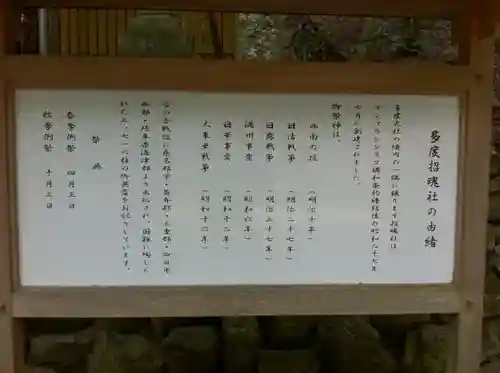 多度招魂社の由緒
多度大社の境内の一隅に鎮ります招魂社は
サンフランシスコ講和条約締結後の昭和二十七年
七月に創建されました。
御祭神は、
西南の役 (明治十年)
日清戦争 (明治二十七年)
日露戦争 (明治三十七年)
満州事変 (昭和六年)
日華事変 (昭和十二年)
大東亜戦争 (昭和十六年)
などの戦役に
桑名郡・員弁郡・三重郡・四日市
され、国難に殉じ
れた二、七一六柱の御英霊をお祀りしています。
祭典
春季例祭 四月三日
秋季例祭 十月三日